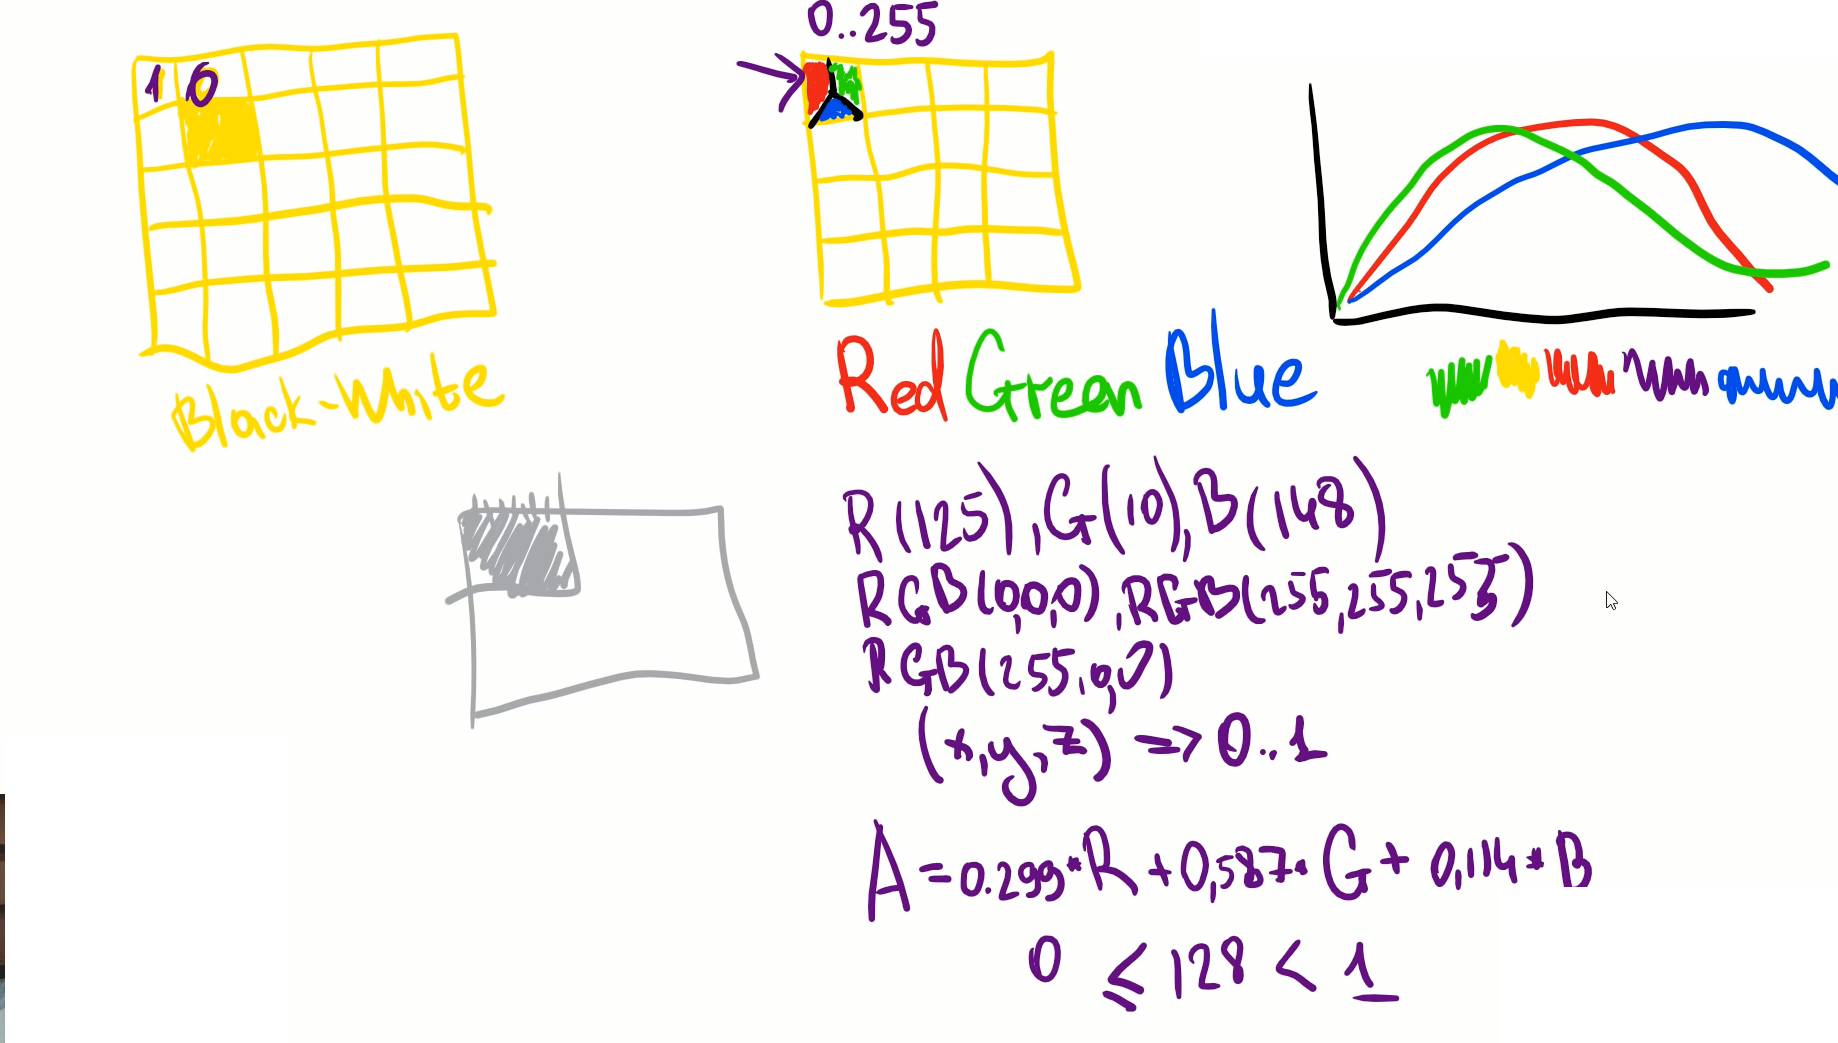 0..255
1 0
Black-White
Red Green Blue
R(125), G(10), B(148)
RGB(0,0,0), RGB(255,255,255)
RGB(255,0,0)
(x,y,z) => 0..1
A = 0.299*R + 0,587• G + 0,114 * B
0 ≤ 128 < 1